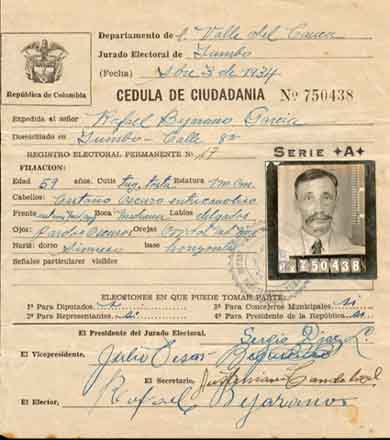 Departamento de Valle del Cauca
Jurado Electoral de Yumbo
(Fecha) 3 de 1934
República de Colombia
CEDULA DE CIUDADANIA Nº 750438
Expedida al señor Rafael Bejarano Garcia
Domiciliado en Yumbo - Calle 8ª
REGISTRO ELECTORAL PERMANENTE Nº 67
SERIE "A"
FILIACION:
Edad 59 años. Cutis Estatura
Cabellos: Castaño oscuro entrecanoso
Frente Boca: Mediana Labios delgados
Ojos: Pardos oscuros Orejas
Nariz: dorso sinuoso base horizontal
Señales particulares visibles
750438
ELECCIONES EN QUE PUEDE TOMAR PARTE:
1ª Para Diputados. Si 3ª Para Concejeros Municipales Si
2ª Para Representantes. Si 4ª Para Presidente de la República Si
El Presidente del Jurado Electoral, Sergio Diaz L.
El Vicepresidente, Julio Cesar
El Secretario,
El Elector, Rafael Bejarano